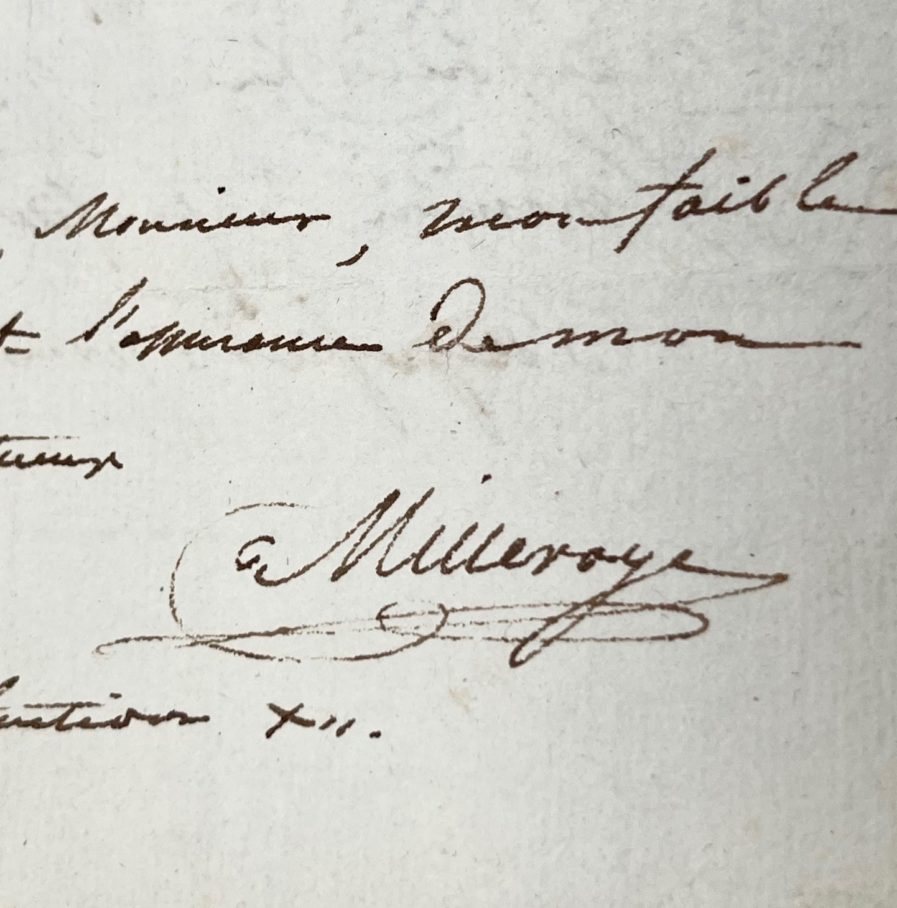 , Monsieur, mon faible
t l'assurance de mon
tueux
Millevoye
xii.